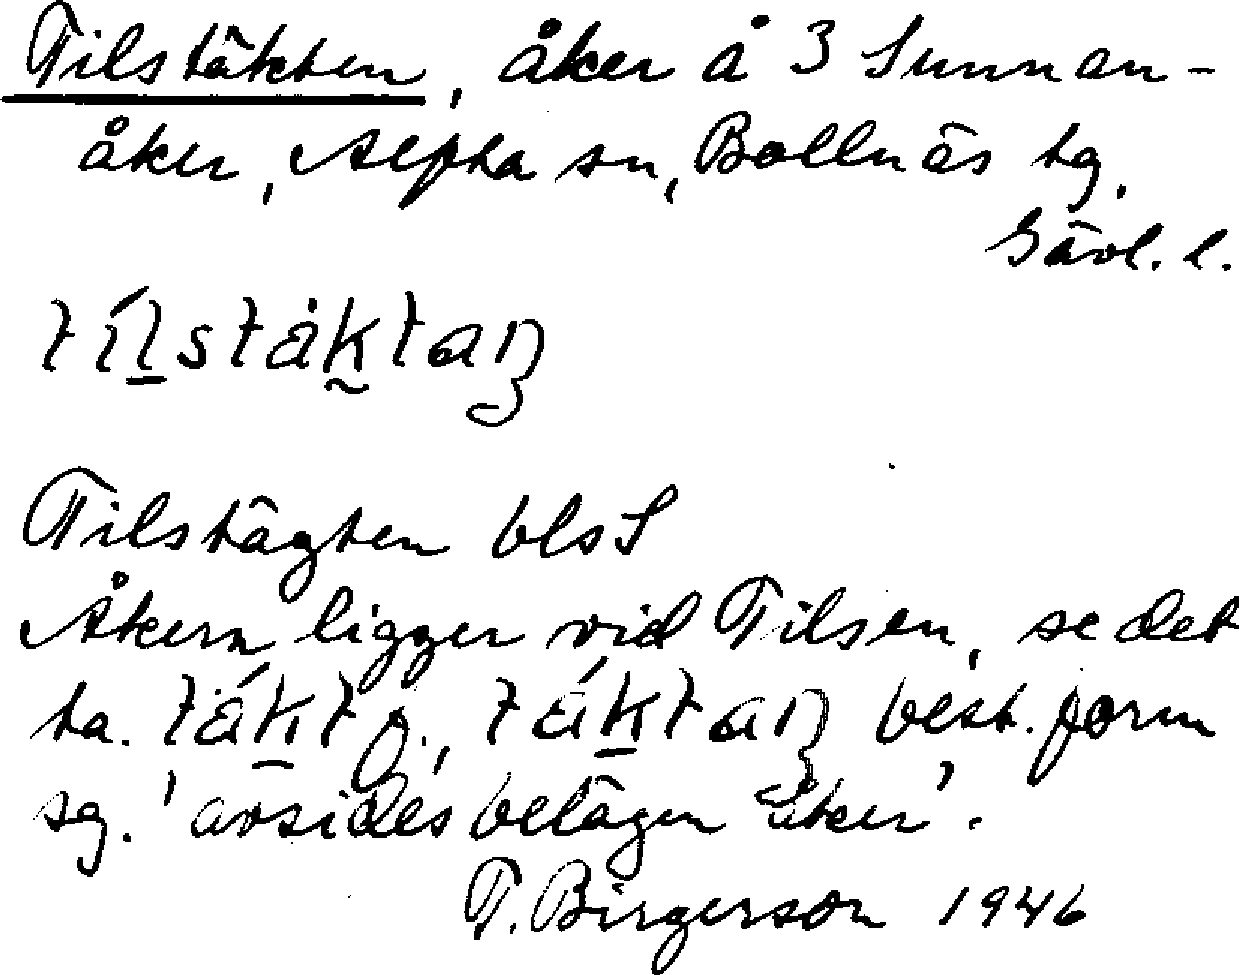 Tilstäkten, åker å 3 Sunnan-
åker, Alfta sn, Bollnäs tg.
Gävl. l.
tílstäktaɲ
Tilstägten bls S
Åkern ligger vid Tilsen, se det
ta. , täktaɲ best. form
sg. 'avsides belägen åker'.
T. Birgerson 1946